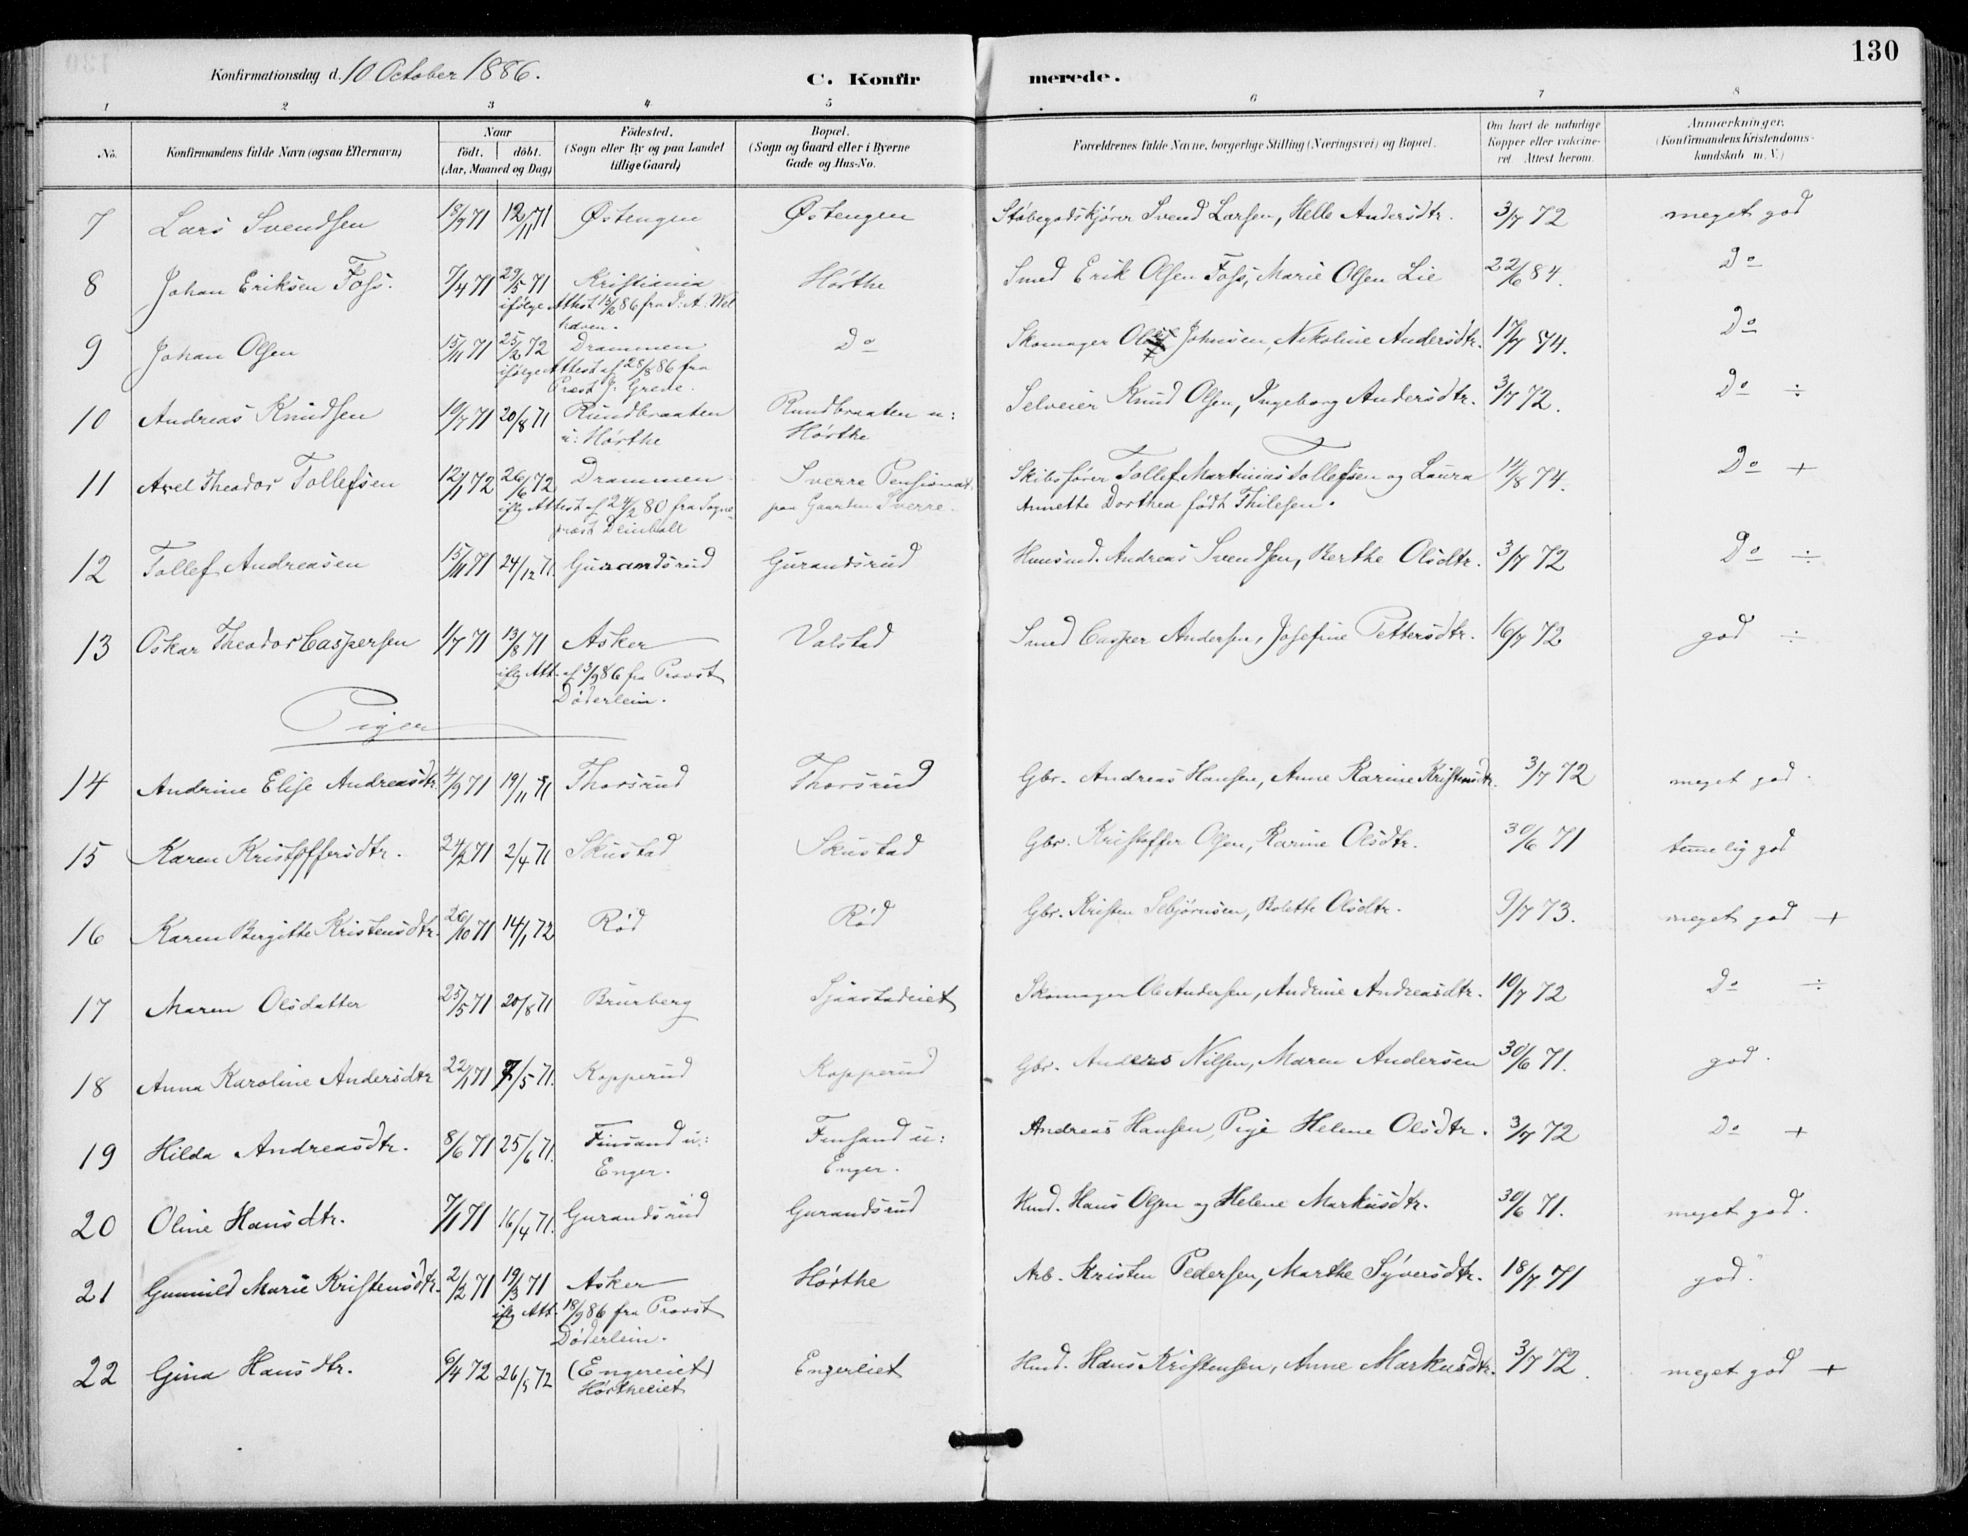 130
Konfirmationsdag d. 10 October 1886.
C. Konfir merede.
1 2 3 4 5 6 7 8
No. Konfirmandens fulde Navn (ogsaa Efternavn) Naar født, døbt. (Aar, Maaned og Dag) Fødested. (Sogn eller By og paa Landet tillige Gaard) Bopæl. (Sogn og Gaard eller i Byerne Gade og Hus-No. Forældrenes fulde Navne, borgerlige Stilling (Næringsvei) og Bopæl. Om havt de naturlige Kopper eller vaccineret. Attest herom. Anmærkninger. (Konfirmandens Kristendomskundskab m. V.)
7 Lars Svendsen 18/9 71 12/11 71 Østengen Østengen Svend Larsen, Helle Andersdtr. 3/7 72 meget god
8 Johan Eriksen Foss. 7/4 71 29/5 71 Kristiania Hørthe Smed Erik Olsen Foss, Marie Olsen Lie 22/6 84. Do
ifølge Attest 15/2 86 fra J. A. Wel
haven.
9 Johan Olsen 15/11 71 25/2 72 Drammen Do Skomager Johnsen, Nikoline Andersdtr. 17/7 74. Do
ifølge Attest af 28/8 86 fra
Præst J. Grede.
10 Andreas Knudsen 19/7 71 20/8 71 Rundbraaten Rundbraaten u: Selveier Knud Olsen, Ingeborg Andersdtr. 3/7 72. Do ÷
u: Hørthe Hørthe
11 Axel Theodor Tollefsen 12/1 72 26/6 72 Drammen Sverre Pensionat Skibsfører Tollef Martinius Tollefsen og Laura 14/8 74. Do +
iflg Attest af 24/2 80 fra Sogne- paa Gaarden Sverre. Annette Dorthea født Thilesen.
præst Deinboll
12 Tollef Andreasen 15/11 71 24/12 71. Gurandsrud Gurandsrud Husmd. Andreas Svendsen, Berthe Olsdtr. 3/7 72 Do ÷
13 Oskar Theodor Caspersen 1/7 71 13/8 71 Asker Valstad Smed Casper Andersen, Josefine Pettersdtr. 16/7 72 god ÷
iflg Att. af 3/9 86 fra Provst
Døderlein.
Piger
14 Andrine Elise Andreasdtr. 4/9 71 19/11 71 Thorsrud Thorsrud Gbr. Andreas Hansen, Anne Karine Kristensdtr. 3/7 72 meget god.
15 Karen Kristoffersdtr. 24/2 71 2/4 71 Skustad Skustad Gbr. Kristoffer Olsen, Karine Olsdtr. 30/6 71 temmelig god
16 Karen Bergitte Kristensdtr. 26/10 71 14/1 72 Rød Rød Gbr. Kristen Sebjørnsen, Bolette Olsdtr. 9/7 73. meget god +
17 Maren Olsdatter 25/5 71 20/8 71 Brurberg Sjaastadeiet Skomager Ole Andersen, Andrine Andreasdtr. 10/7 72 Do ÷
18 Anna Karoline Andersdtr 22/1 71 7/5 71. Kopperud Kopperud Gbr. Anders Nilsen, Maren Andersen 30/6 71. god.
19 Hilda Andreasdtr. 8/6 71 25/6 71. Finsand u: Finsand u: Andreas Hansen, Pige Helene Olsdtr. 3/7 72 Do +
Enger. Enger.
20 Oline Hansdtr. 7/1 71 16/4 71. Gurandsrud Gurandsrud Hmd. Hans Olsen og Helene Markusdtr. 30/6 71. meget god.
21 Gunnild Marie Kristensdtr. 2/2 71 19/3 71 Asker Hørthe Arb. Kristen Pedersen, Marthe Syversdtr. 18/7 71 god.
iflg Att. 18/9 86 fra Provst
Døderlein.
22 Gina Hansdtr. 6/4 72 26/5 72 (Engereiet) Engerliet Hmd. Hans Kristensen, Anne Markusdtr. 3/7 72. meget god +
Hørtheeiet